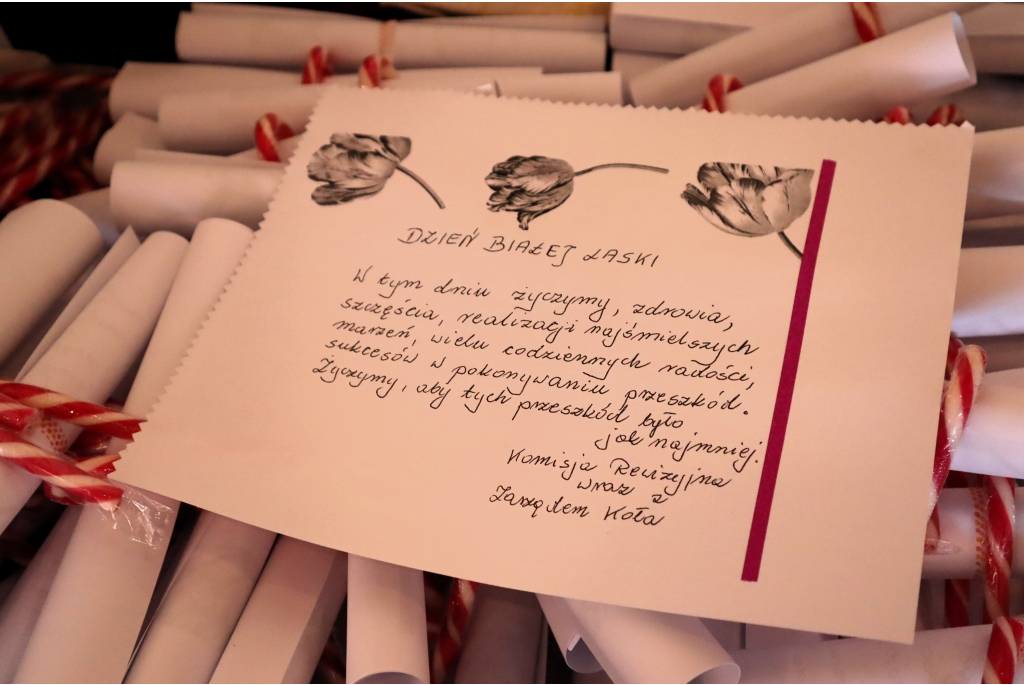 DZIEŃ BIAŁEJ LASKI
W tym dniu życzymy, zdrowia,
szczęścia, realizacji najśmielszych
marzeń, wielu codziennych radości,
sukcesów w pokonywaniu przeszkód.
Życzymy, aby tych przeszkód było
jak najmniej.
Komisja Rewizyjna
wraz z
Zarządem Koła